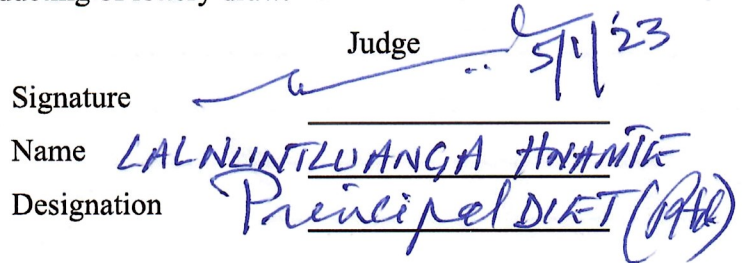 Judge
5/1/'23
Signature
Name LALNUNTLUANGA HNAMTE
Designation Principal DIET (Rtd)